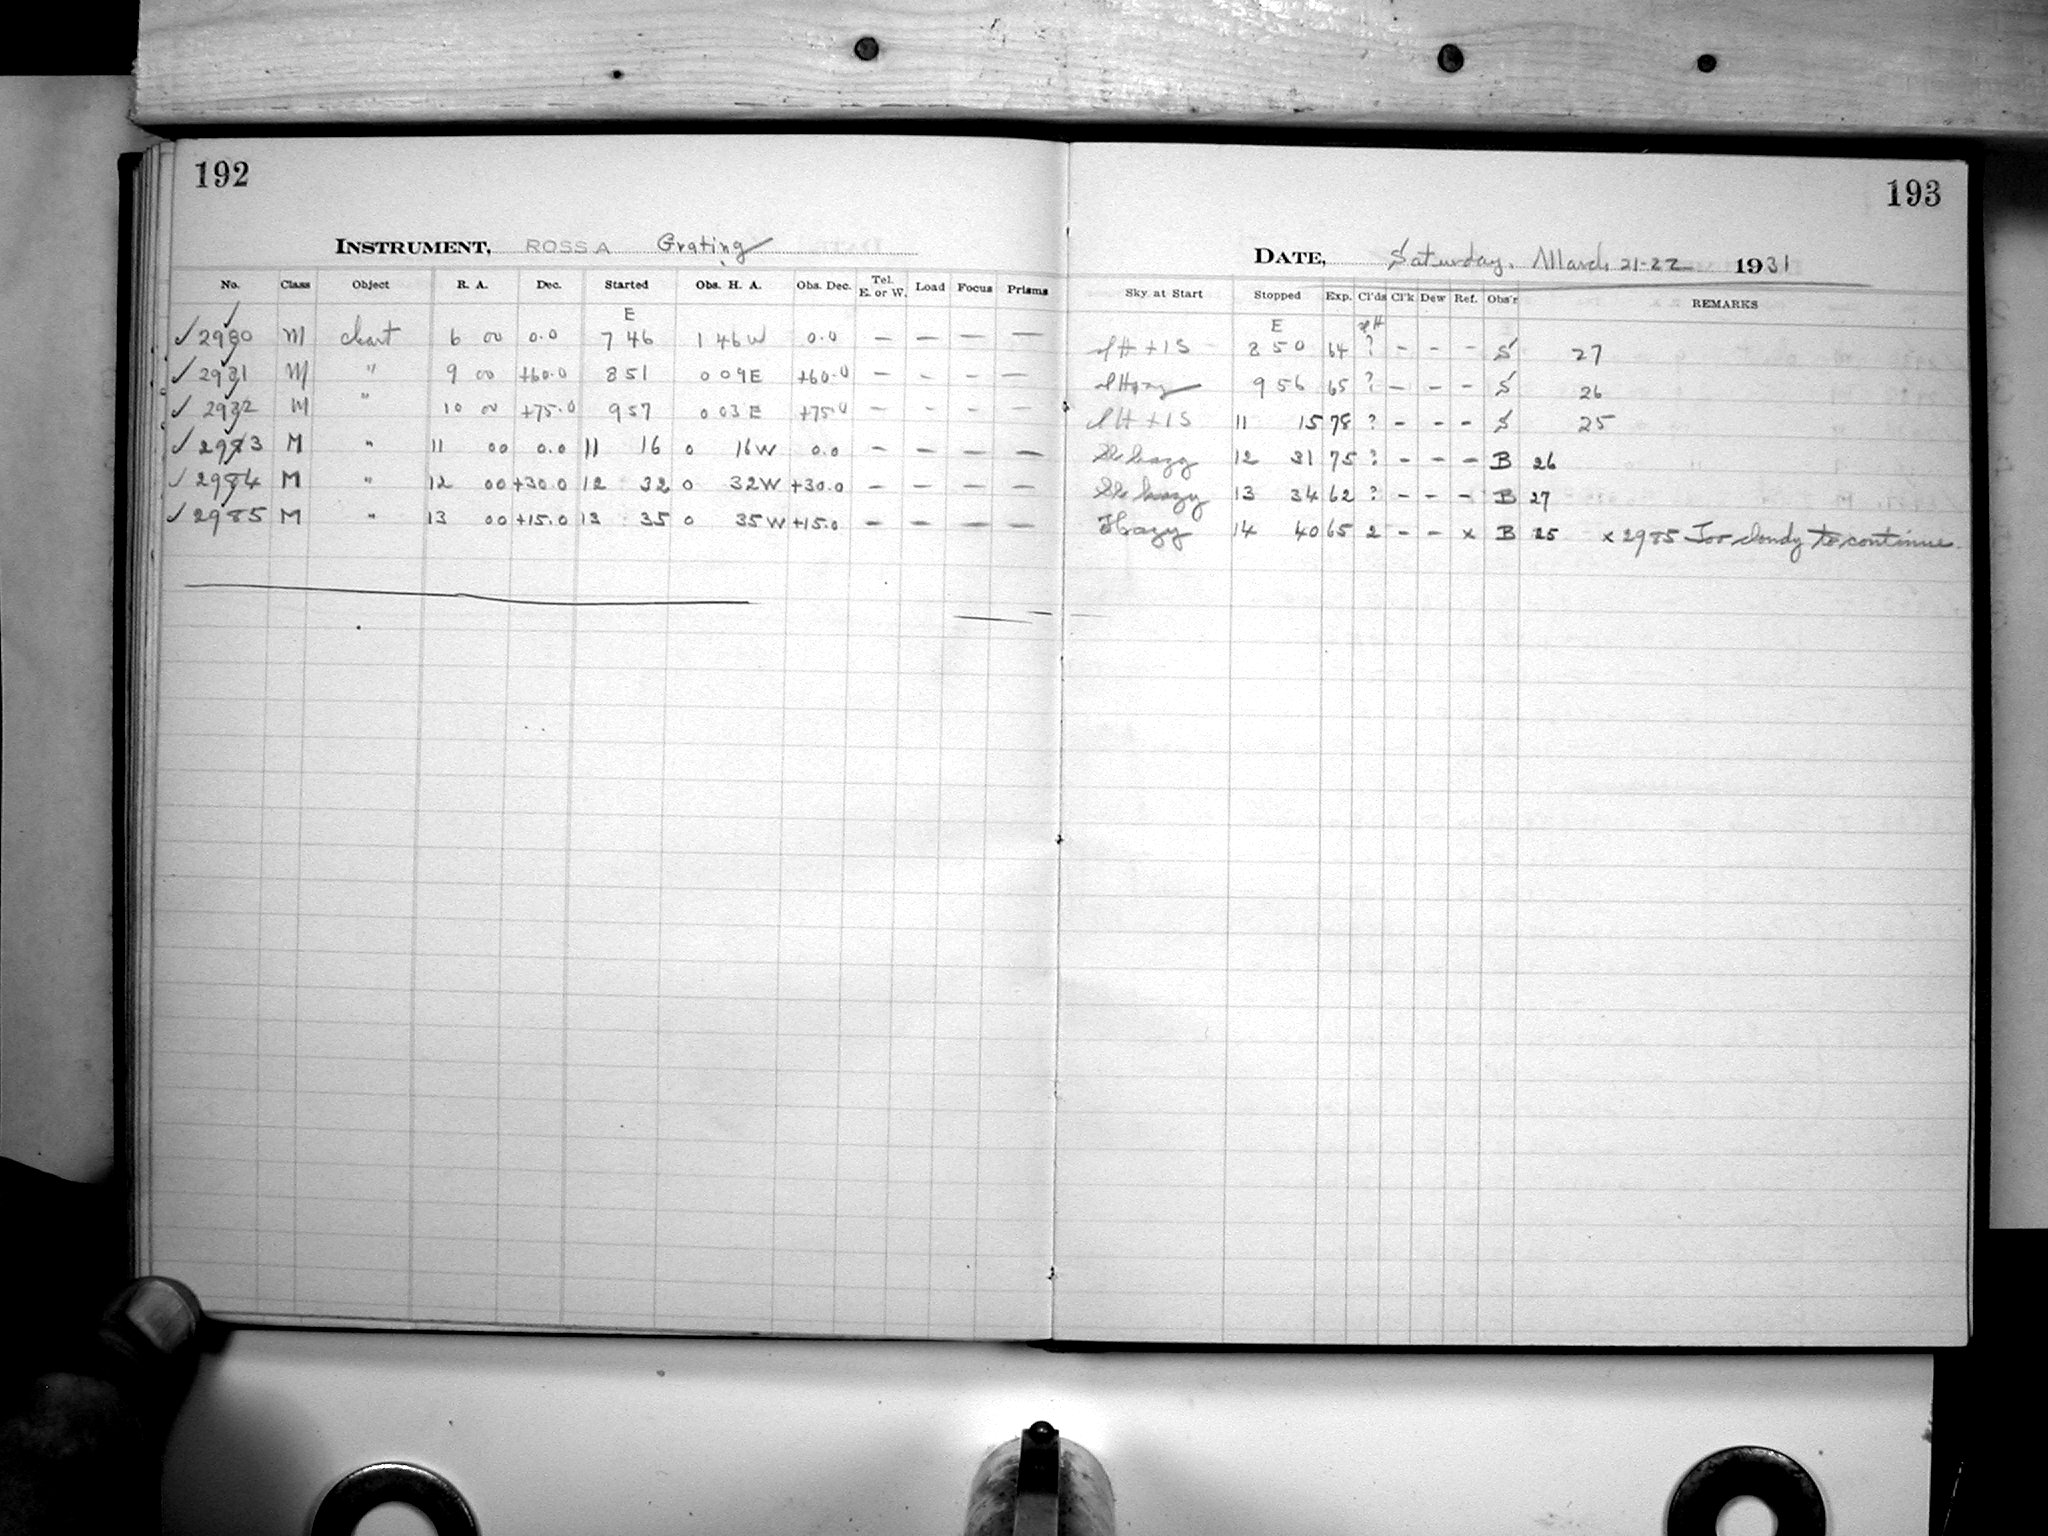 192
INSTRUMENT, ROSS A Grating
No. Class Object R. A. Dec. Started Obs. H. A. Obs. Dec. Tel. E. or W. Load Focus Prisms
E
✓ 2980 M chart 6 00 0.0 7 46 1 46 W 0.0 — — — —
✓ 2981 M " 9 00 +60.0 8 51 0 09 E +60.0 — - — —
✓ 2982 M " 10 00 +75.0 9 57 0 03 E +75.0 — - — —
✓ 2983 M " 11 00 0.0 11 16 0 16 W 0.0 — — — —
✓ 2984 M " 12 00 +30.0 12 32 0 32 W +30.0 — — — —
✓ 2985 M " 13 00 +15.0 13 35 0 35 W +15.0 — — — —
193
DATE, Saturday, March 21-22 1931
Sky at Start Stopped Exp. Cl'ds Cl'k Dew Ref. Obs'r REMARKS
E
sl H + 1 S 8 50 64 ? - - - S 27
sl Hazy 9 56 65 ? - - - S 26
sl H + 1 S 11 15 78 ? - - - S 25
Sl. hazy 12 31 75 ? - - - B 26
Sl. hazy 13 34 62 ? - - - B 27
Hazy 14 40 65 2 - - x B 25 x 2985 Too cloudy to continue.